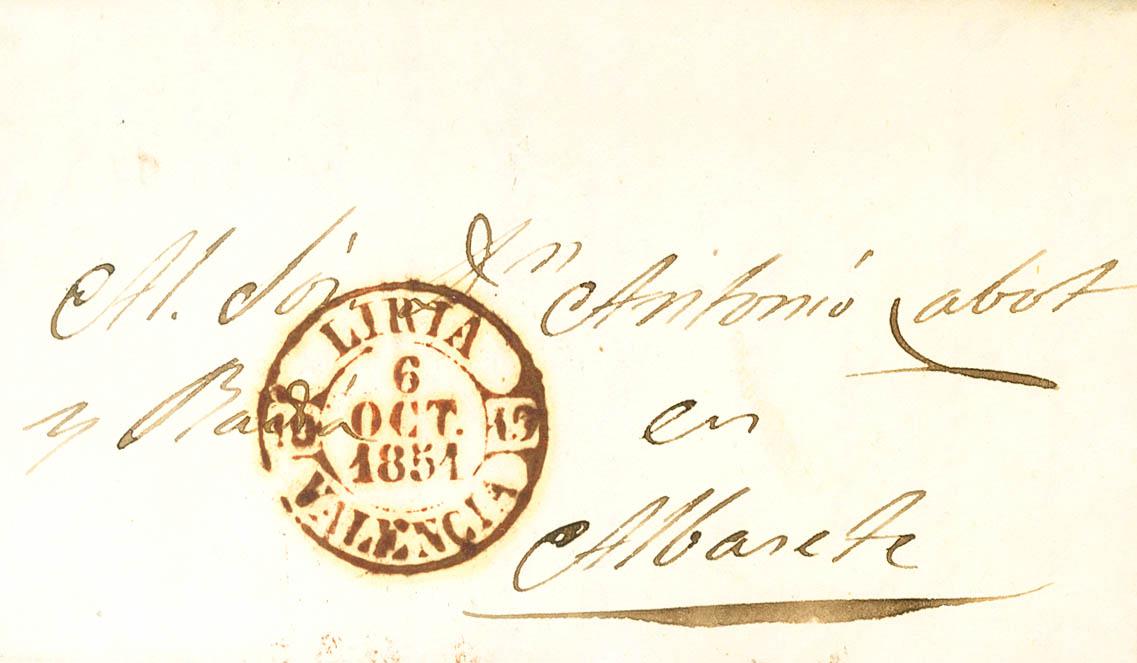 Al. Sór Dn Antonió Cabot
y Badiá en
Albasete
LIRIA
6
OCT.
1851
VALENCIA